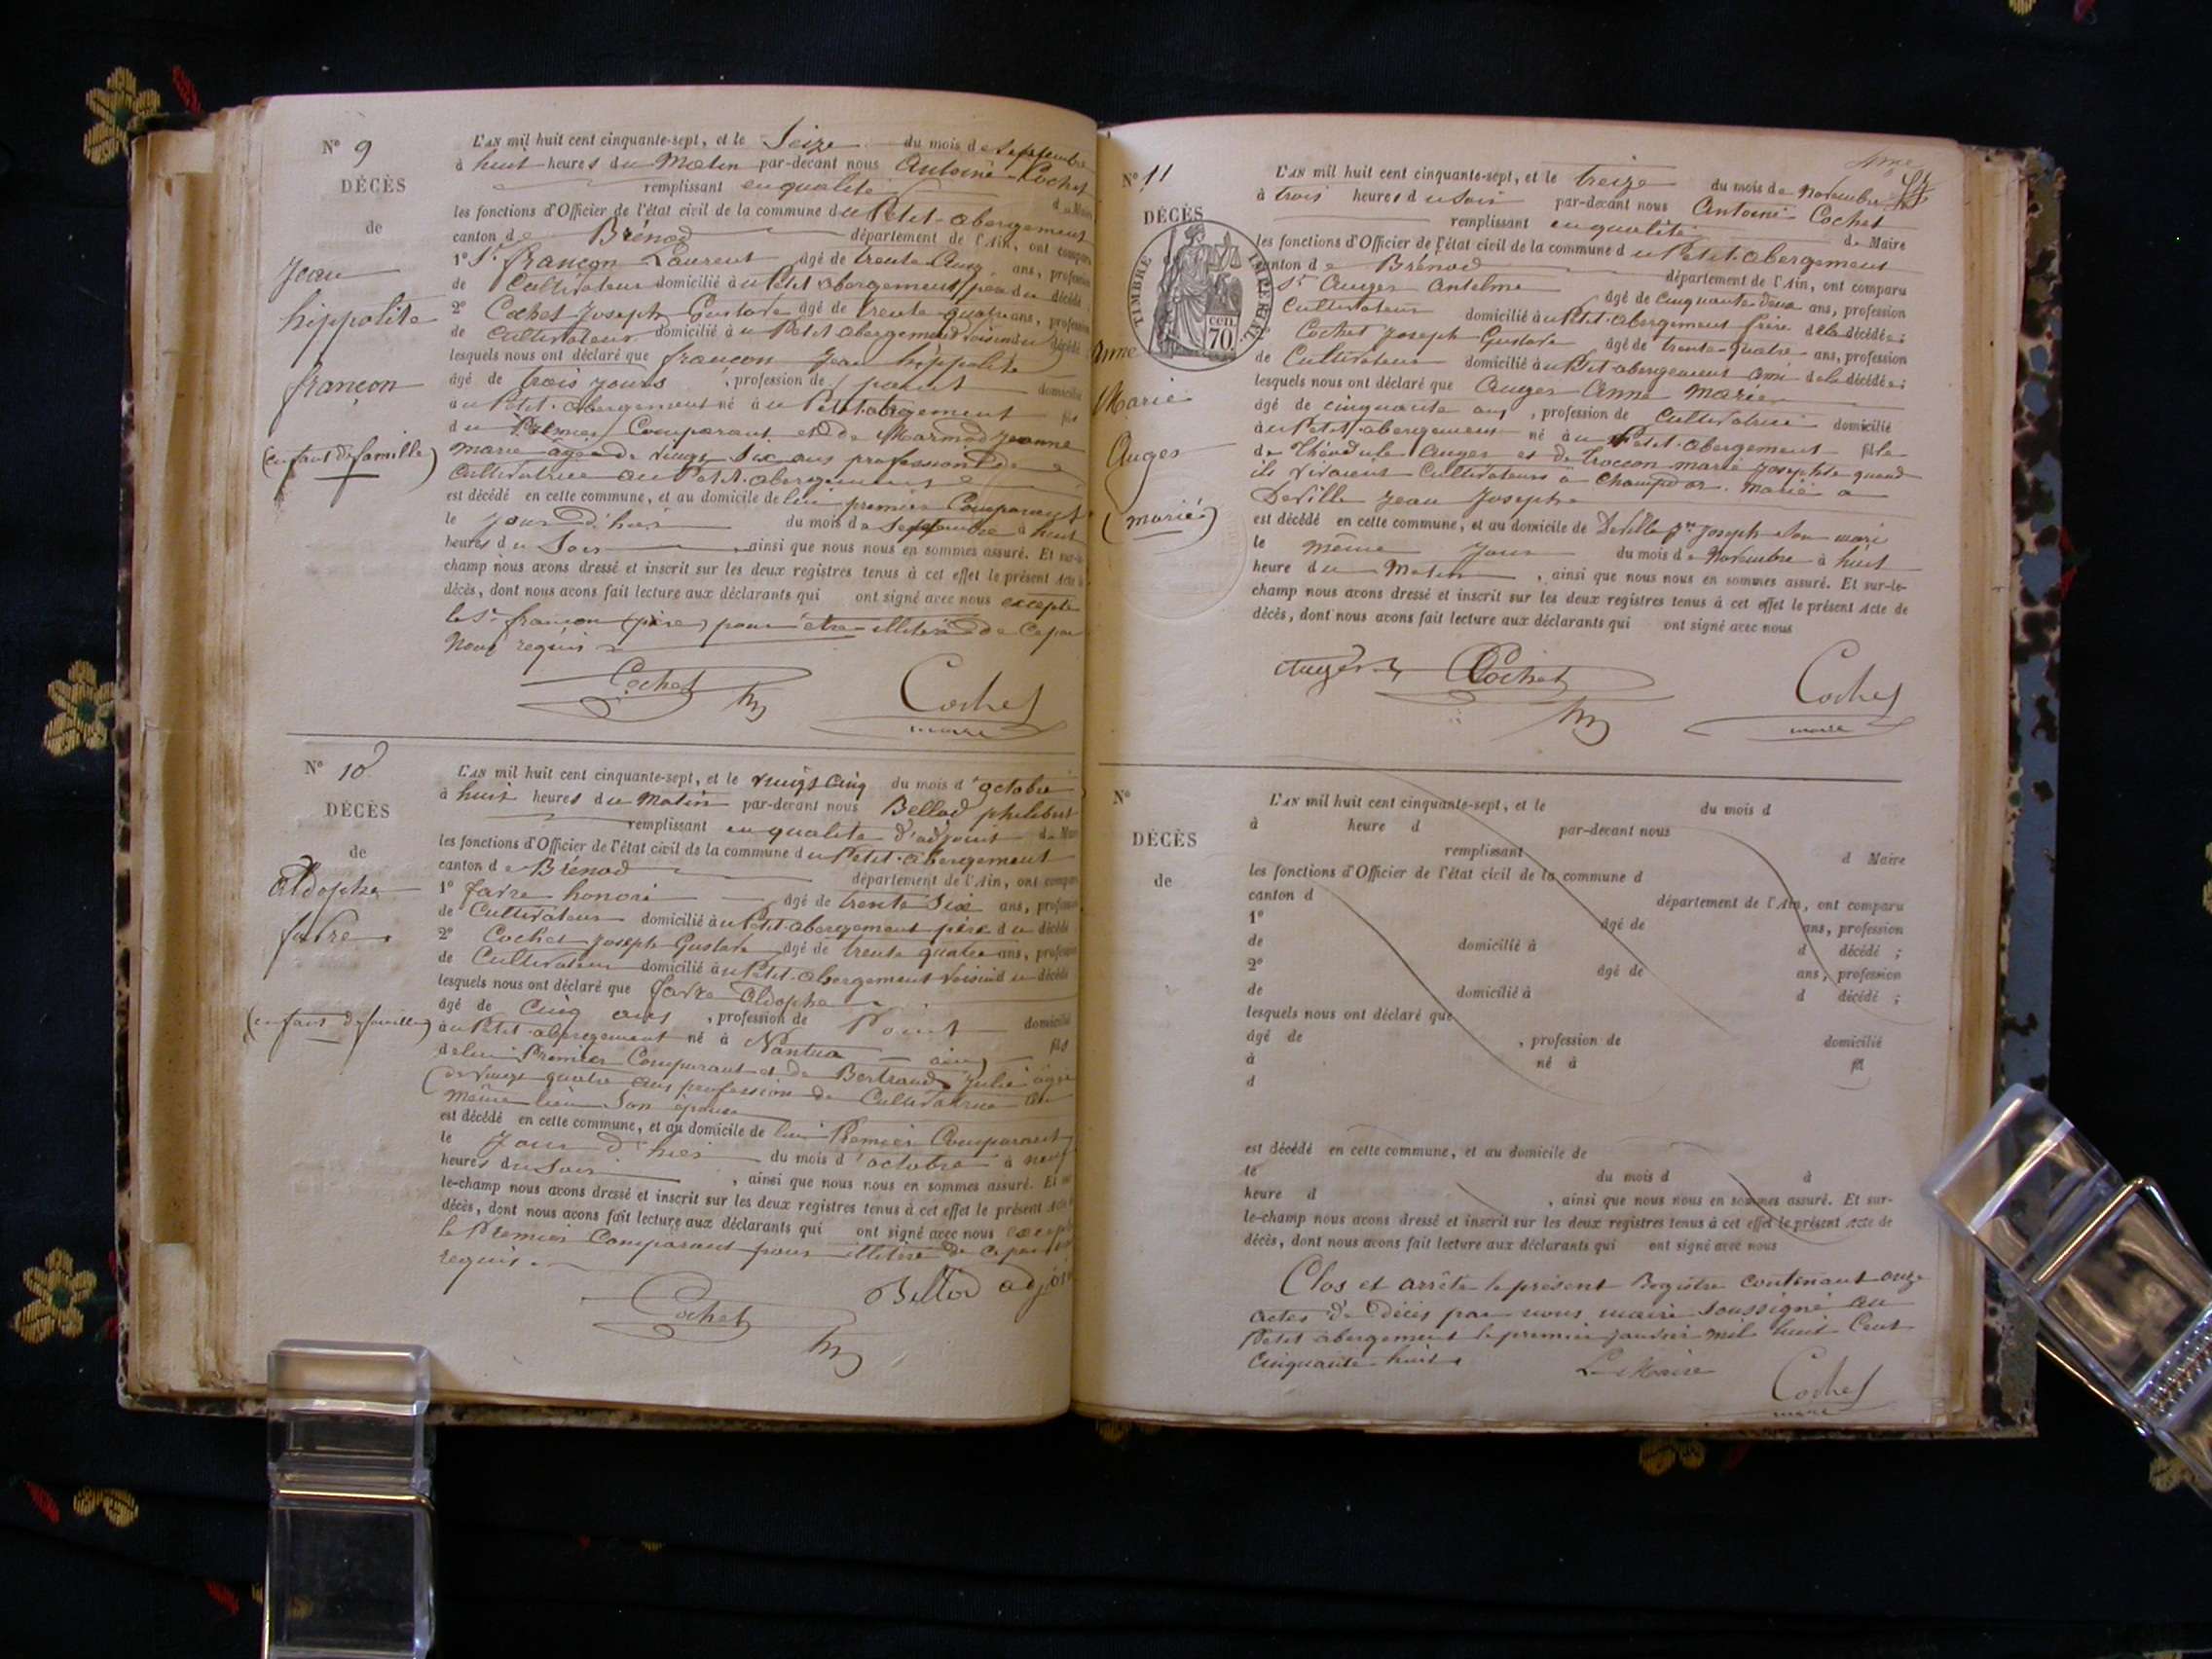 N° 9
DÉCÈS
de
Jean
hippolite
françon
(enfant de famille)
L'AN mil huit cent cinquante-sept, et le Seize du mois de Septembre
à huit heures du Matin par-devant nous Antoine Cochet
remplissant en qualité de Maire
les fonctions d'Officier de l'état civil de la commune du Petit-abergement
canton de Brénod département de l'Ain, ont comparu
1° Sr. françon Laurent âgé de trente Cinq ans, profession
de Cultivateur domicilié au Petit abergement père du décédé
2° Cochet Joseph Gustave âgé de trente quatre ans, profession
de Cultivateur domicilié au Petit abergement voisin du décédé
lesquels nous ont déclaré que françon Jean hippolite
âgé de trois jours , profession de point domicilié
au Petit-Abergement né au Petit abergement fils
du Premier Comparant et de Marmod Jeanne
marie âgée de vingt Six ans profession de
Cultivatrice au Petit-abergement
est décédé en cette commune, et au domicile de lui premier Comparant
le jour d'hier du mois de Septembre à huit
heures du Soir ainsi que nous nous en sommes assuré. Et sur-le-
champ nous avons dressé et inscrit sur les deux registres tenus à cet effet le présent Acte de
décès, dont nous avons fait lecture aux déclarants qui ont signé avec nous excepté
le Sr. françon (père) pour être illitéré de ce par
Nous requis
Cochet Cochet
maire
N° 10
DÉCÈS
de
Aldophe
favre
(enfant de famille)
L'AN mil huit cent cinquante-sept, et le vingt Cinq du mois d'octobre
à huit heures du Matin par-devant nous Bellod philibert
remplissant en qualité d'adjoint de Maire
les fonctions d'Officier de l'état civil de la commune du Petit-abergement
canton de Brénod département de l'Ain, ont comparu
1° favre honoré âgé de trente Six ans, profession
de Cultivateur domicilié au Petit-abergement père du décédé
2° Cochet Joseph Gustave âgé de trente quatre ans, profession
de Cultivateur domicilié au Petit-abergement voisin du décédé
lesquels nous ont déclaré que favre Aldophe
âgé de Cinq ans , profession de Point domicilié
au Petit-abergement né à Nantua ain fils
de lui Premier Comparant et de Bertrand Julie âgée
de vingt quatre ans profession de Cultivatrice au
même lieu Son épouse
est décédé en cette commune, et au domicile de lui Premier Comparant
le jour d'hier du mois d'octobre à neuf
heures du Soir , ainsi que nous nous en sommes assuré. Et sur-
le-champ nous avons dressé et inscrit sur les deux registres tenus à cet effet le présent Acte de
décès, dont nous avons fait lecture aux déclarants qui ont signé avec nous excepté
le Premier Comparant pour illitéré de ce par
requis.
Cochet Bellod adjoint
N° 11
DÉCÈS
TIMBRE IMPÉRIAL
70 CEN.
Anne
Marie
Auger
(mariée)
L'AN mil huit cent cinquante-sept, et le treize du mois de Novembre
à trois heures du Soir par-devant nous Antoine Cochet
remplissant en qualité de Maire
les fonctions d'Officier de l'état civil de la commune du Petit-abergement
canton de Brénod département de l'Ain, ont comparu
Sr. Auger Antelme âgé de cinquante deux ans, profession
Cultivateur domicilié au Petit-abergement frère de la décédée;
Cochet Joseph Gustave âgé de trente-quatre ans, profession
de Cultivateur domicilié au Petit-abergement ami de la décédée;
lesquels nous ont déclaré que Auger Anne Marie
âgé de cinquante ans , profession de Cultivatrice domicilié
au Petit-abergement né au Petit-abergement fille
de Théodule Auger et de Troccon marie Josephte quand
ils vivaient Cultivateurs à Champdor. Mariée a
Deville Jean Joseph
est décédé en cette commune, et au domicile de Deville Jn. Joseph Son mari
le même Jour du mois de Novembre à huit
heure du Matin , ainsi que nous nous en sommes assuré. Et sur-le-
champ nous avons dressé et inscrit sur les deux registres tenus à cet effet le présent Acte de
décès, dont nous avons fait lecture aux déclarants qui ont signé avec nous
Auger Cochet Cochet
maire
N°
DÉCÈS
de
L'AN mil huit cent cinquante-sept, et le du mois d
à heure d par-devant nous
remplissant d Maire
les fonctions d'Officier de l'état civil de la commune d
canton d département de l'Ain, ont comparu
1° âgé de ans, profession
de domicilié à d décédé ;
2° âgé de ans, profession
de domicilié à d décédé ;
lesquels nous ont déclaré que
âgé de , profession de domicilié
à né à fil
d
est décédé en cette commune, et au domicile de
le du mois d à
heure d , ainsi que nous nous en sommes assuré. Et sur-
le-champ nous avons dressé et inscrit sur les deux registres tenus à cet effet le présent Acte de
décès, dont nous avons fait lecture aux déclarants qui ont signé avec nous
Clos et arrêté le présent Registre contenant onze
actes de Décès par nous maire Soussigné au
Petit abergement le premier janvier mil huit Cent
Cinquante-huit.
Le Maire Cochet
maire